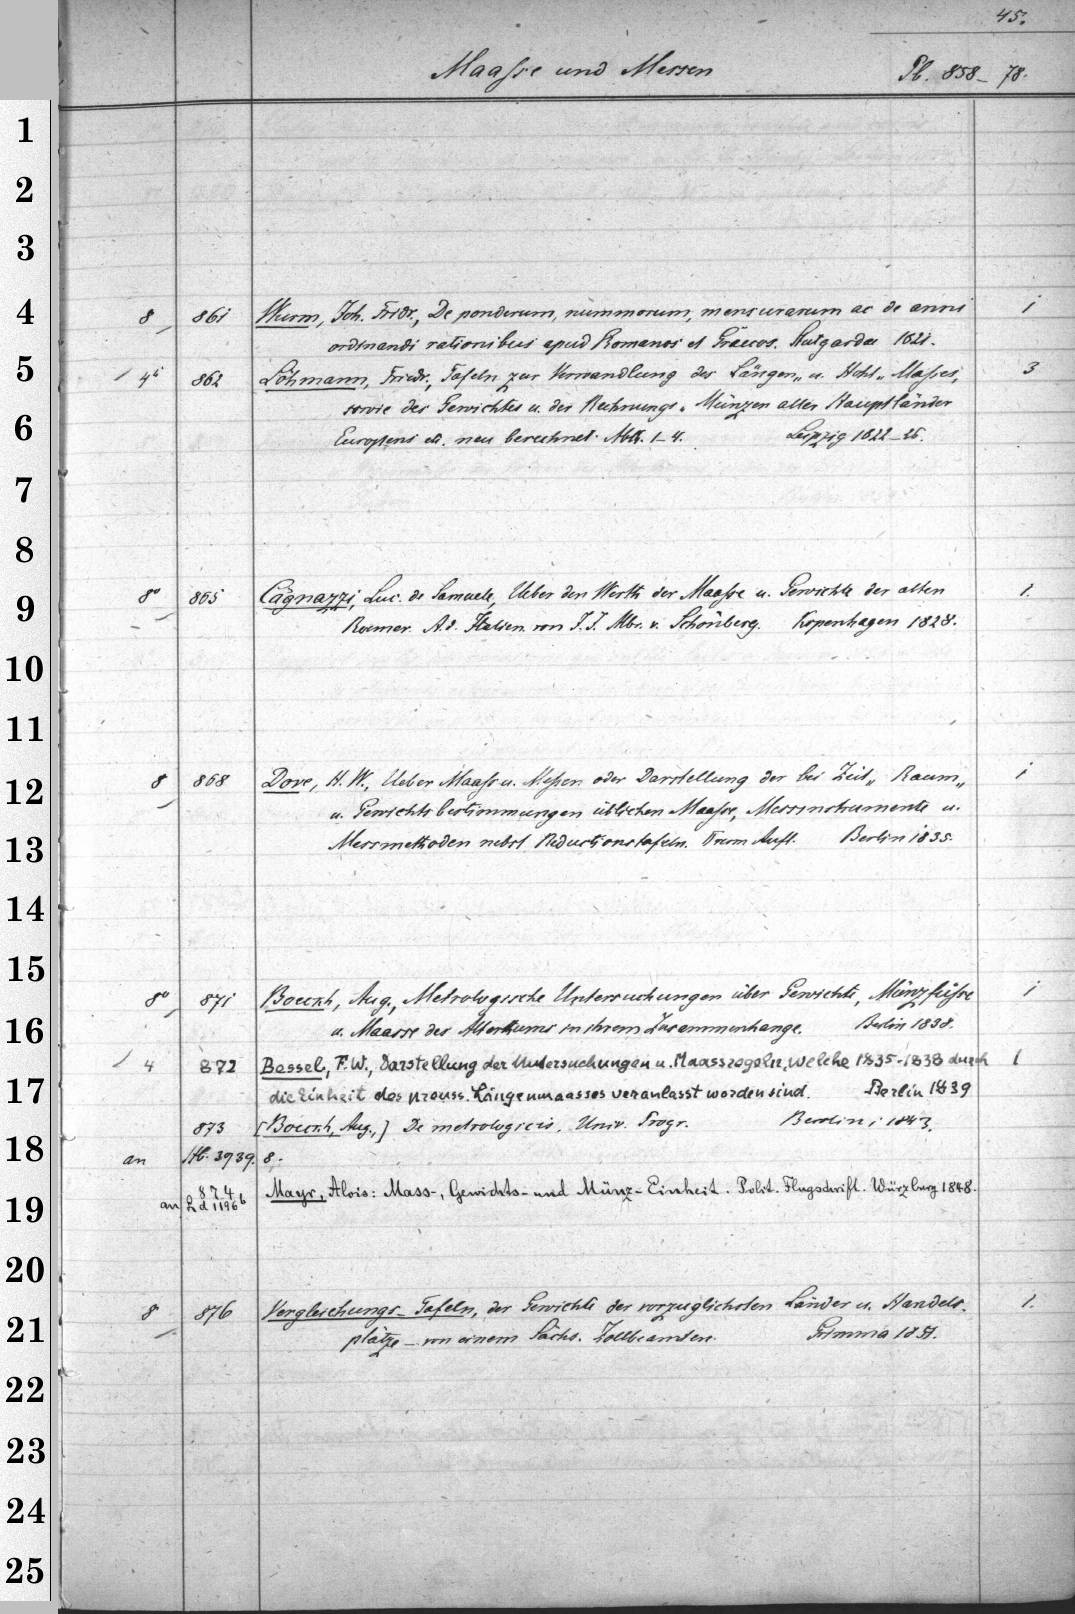 45.
Maasse und Messen Pb. 858-78.
1
2
3
4
8 861 Wurm, Joh. Fridr., De ponderum, nummorum, mensurarum ac de anni 1
ordinandi rationibus apud Romanos et Graecos. Stutgardae 1821.
5
4° 862 Löhmann, Friedr., Tafeln zur Verwandlung des Längen- u. Hohl-Masses, 3
sowie des Gewichtes u. der Rechnungs-Münzen aller Hauptländer
6
Europens etc. neu berechnet. Abth. 1-4. Leipzig 1822-26.
7
8
9
8° 865 Cagnazzi, Luc. de Samuele, Ueber den Werth der Maasse u. Gewichte der alten 1.
Roemer. A. d. Italien. von J. J. Albr. v. Schönberg. Kopenhagen 1828.
10
11
12
8 868 Dove, H. W., Ueber Maass u. Messen oder Darstellung der bei Zeit-, Raum- 1
u. Gewichtsbestimmungen üblichen Maasse, Messinstrumente u.
13
Messmethoden nebst Reductionstafeln. Aufl. Berlin 1835.
14
15
8° 871 Boeckh, Aug., Metrologische Untersuchungen über Gewichte, Münzfüsse 1
16
u. Maasse des Alterthums in ihrem Zusammenhange. Berlin 1838.
4 872 Bessel, F. W., Darstellung der Untersuchungen u. Maassregeln, welche 1835-1838 durch 1
17
die Einheit des preuss. Längenmaasses veranlasst worden sind. Berlin 1839
873 [Boeckh, Aug.,] De metrologicis. Univ. Progr. Berolini 1843.
18
an 3939. 8.
19
874 Mayr, Alois: Mass-, Gewichts- und Münz-Einheit. Polit. Flugschrift. Würzburg 1848.
an 1196b
20
8 876 Vergleichungs-Tafeln, der Gewichte der vorzüglichsten Länder u. Handels- 1.
21
plätze - von einem Sächs. Zollbeamten. Grimma 1851.
22
23
24
25